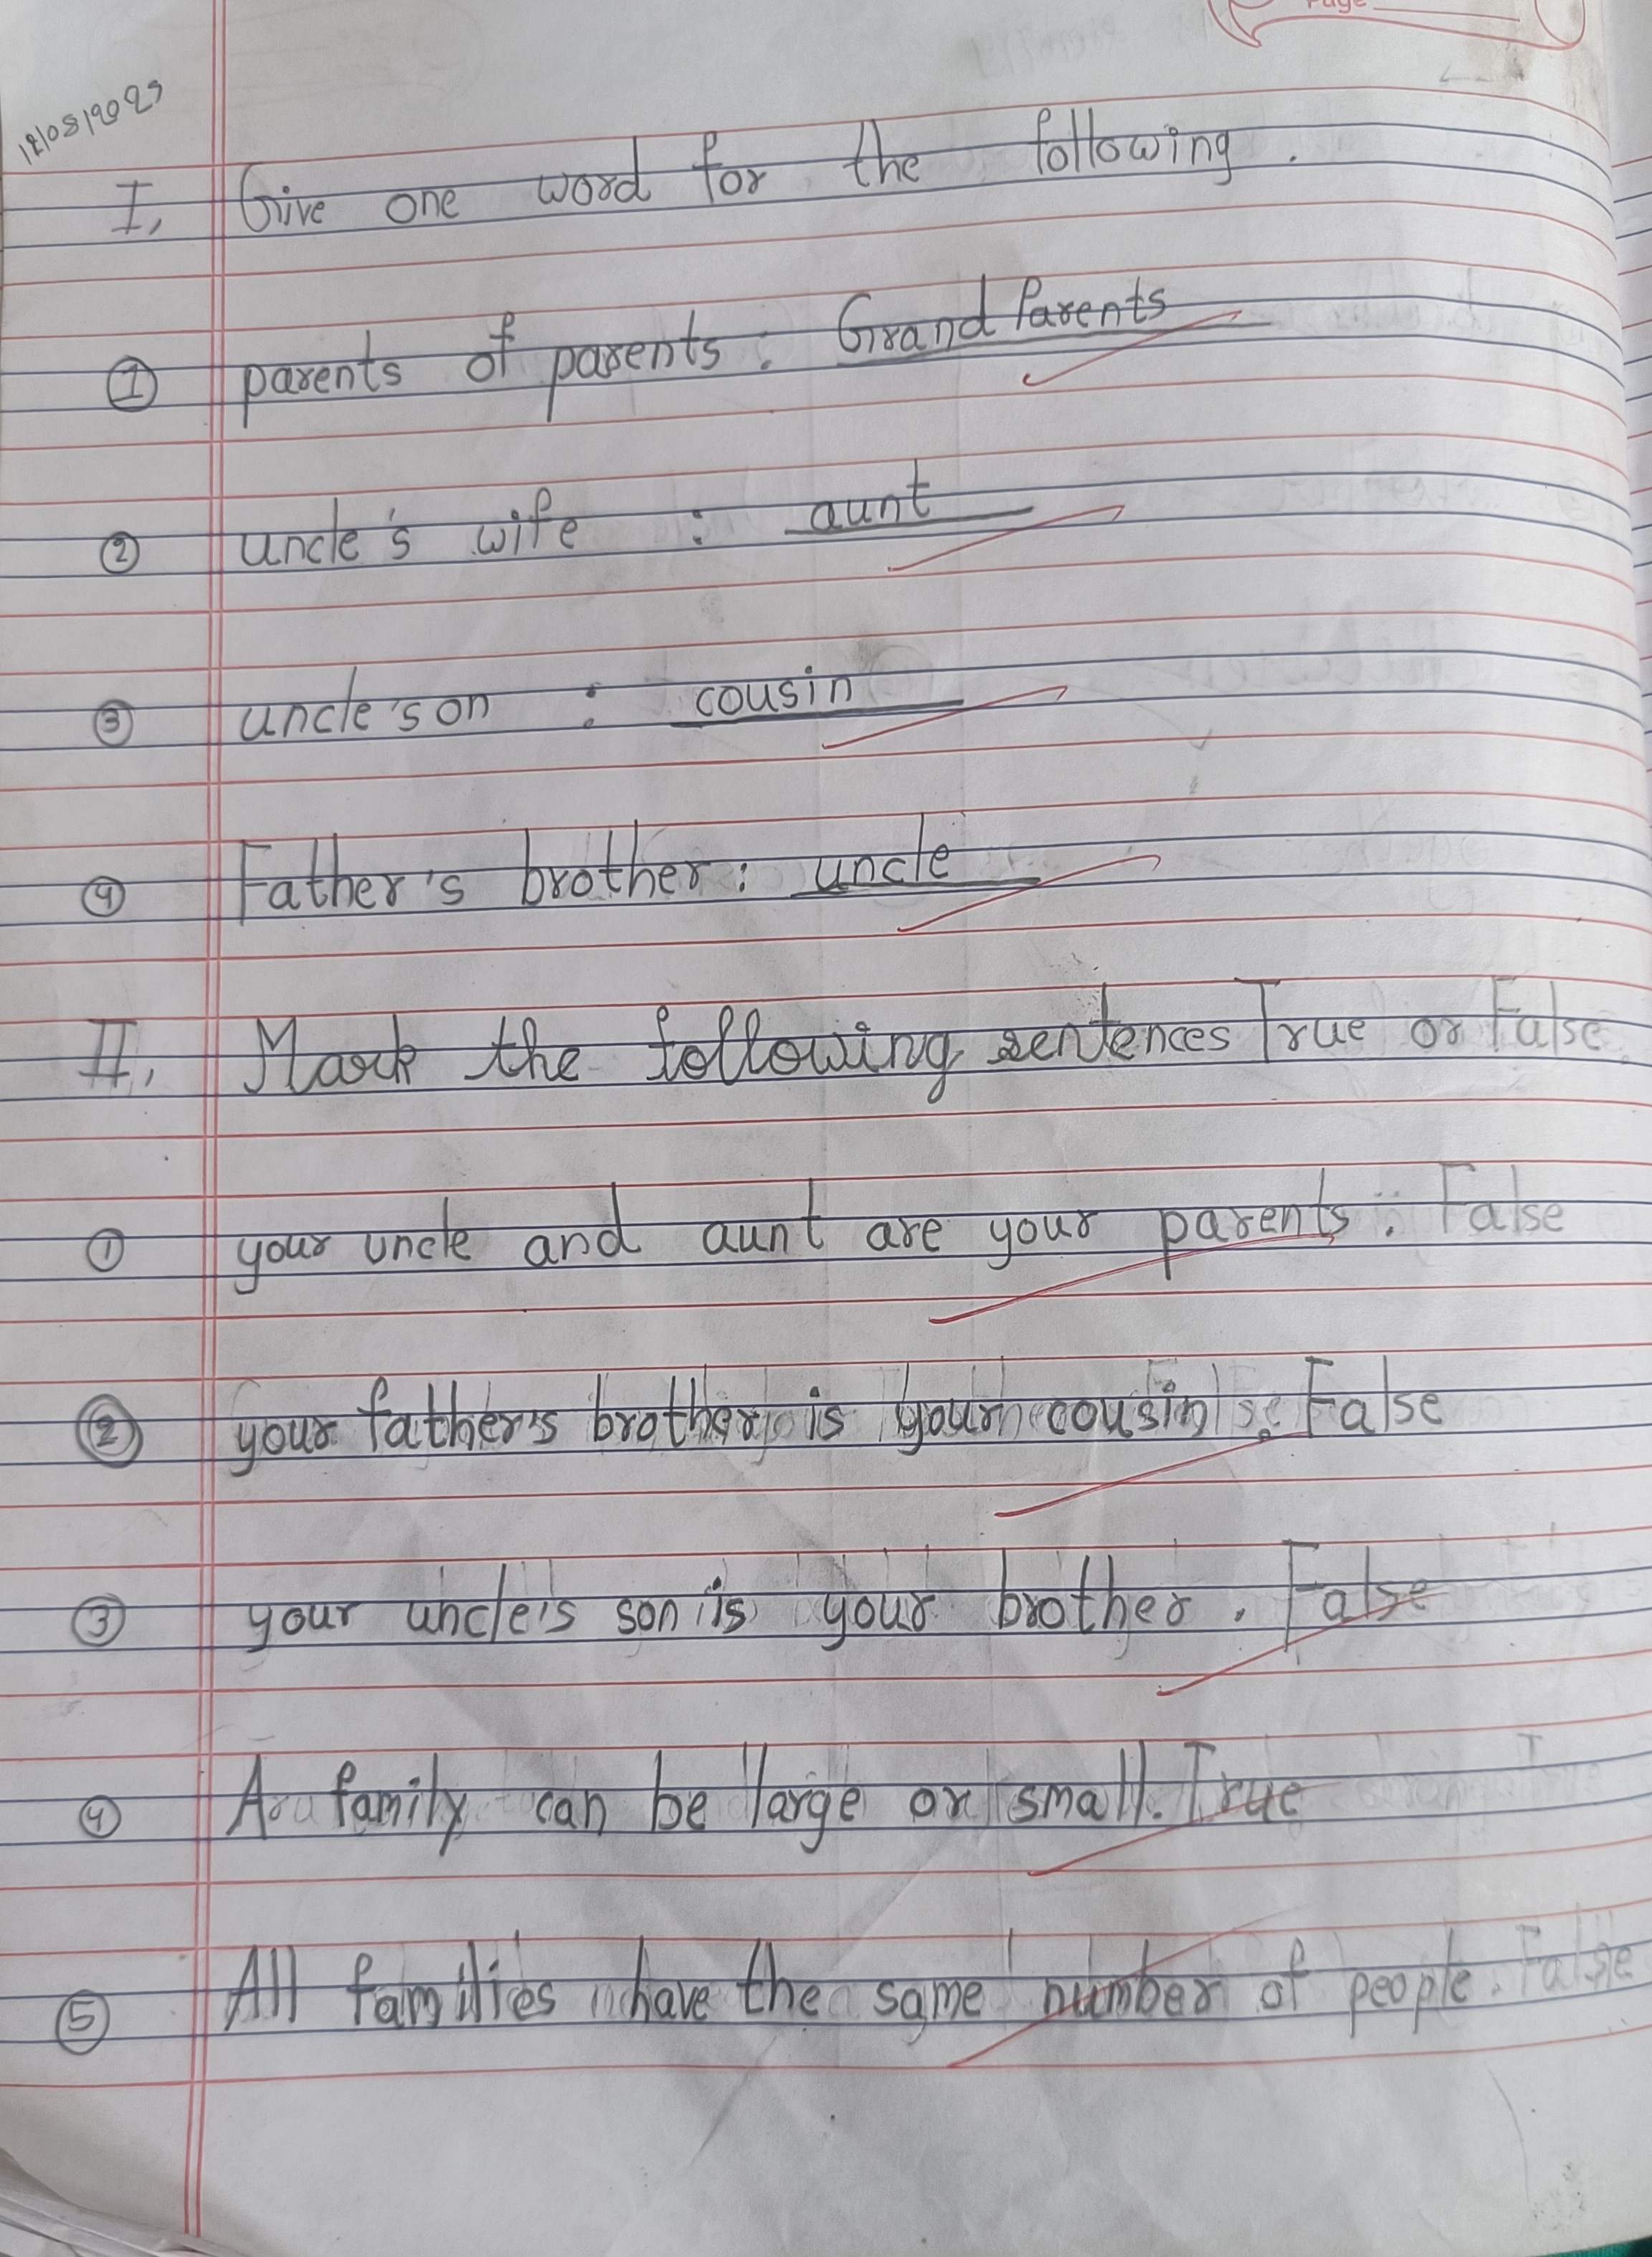 Page
I, Give one word for the following.
① parents of parents : Grand Parents
② uncle's wife : aunt
③ uncle'son : cousin
④ Father's brother : uncle
II, Mark the following sentences True or False
① your uncle and aunt are your parents. False
② your father's brother is your cousin. False
③ your uncle's son is your brother. False
④ A family can be large or small. True
⑤ All families have the same number of people. False